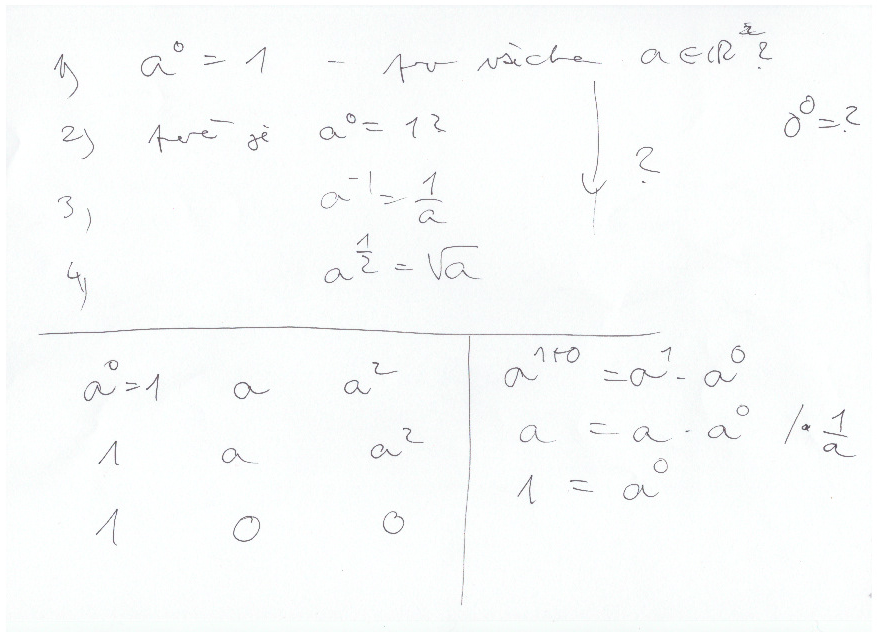 1) a⁰ = 1 - pro všechna a ∈ ℝ ?
0⁰ = ?
2) proč je a⁰ = 1 ?
?
3) a⁻¹ = 1/a
4) a^(1/2) = √a
a⁰ = 1 a a²
1 a a²
1 0 0
a¹⁺⁰ = a¹ · a⁰
a = a · a⁰ / · 1/a
1 = a⁰